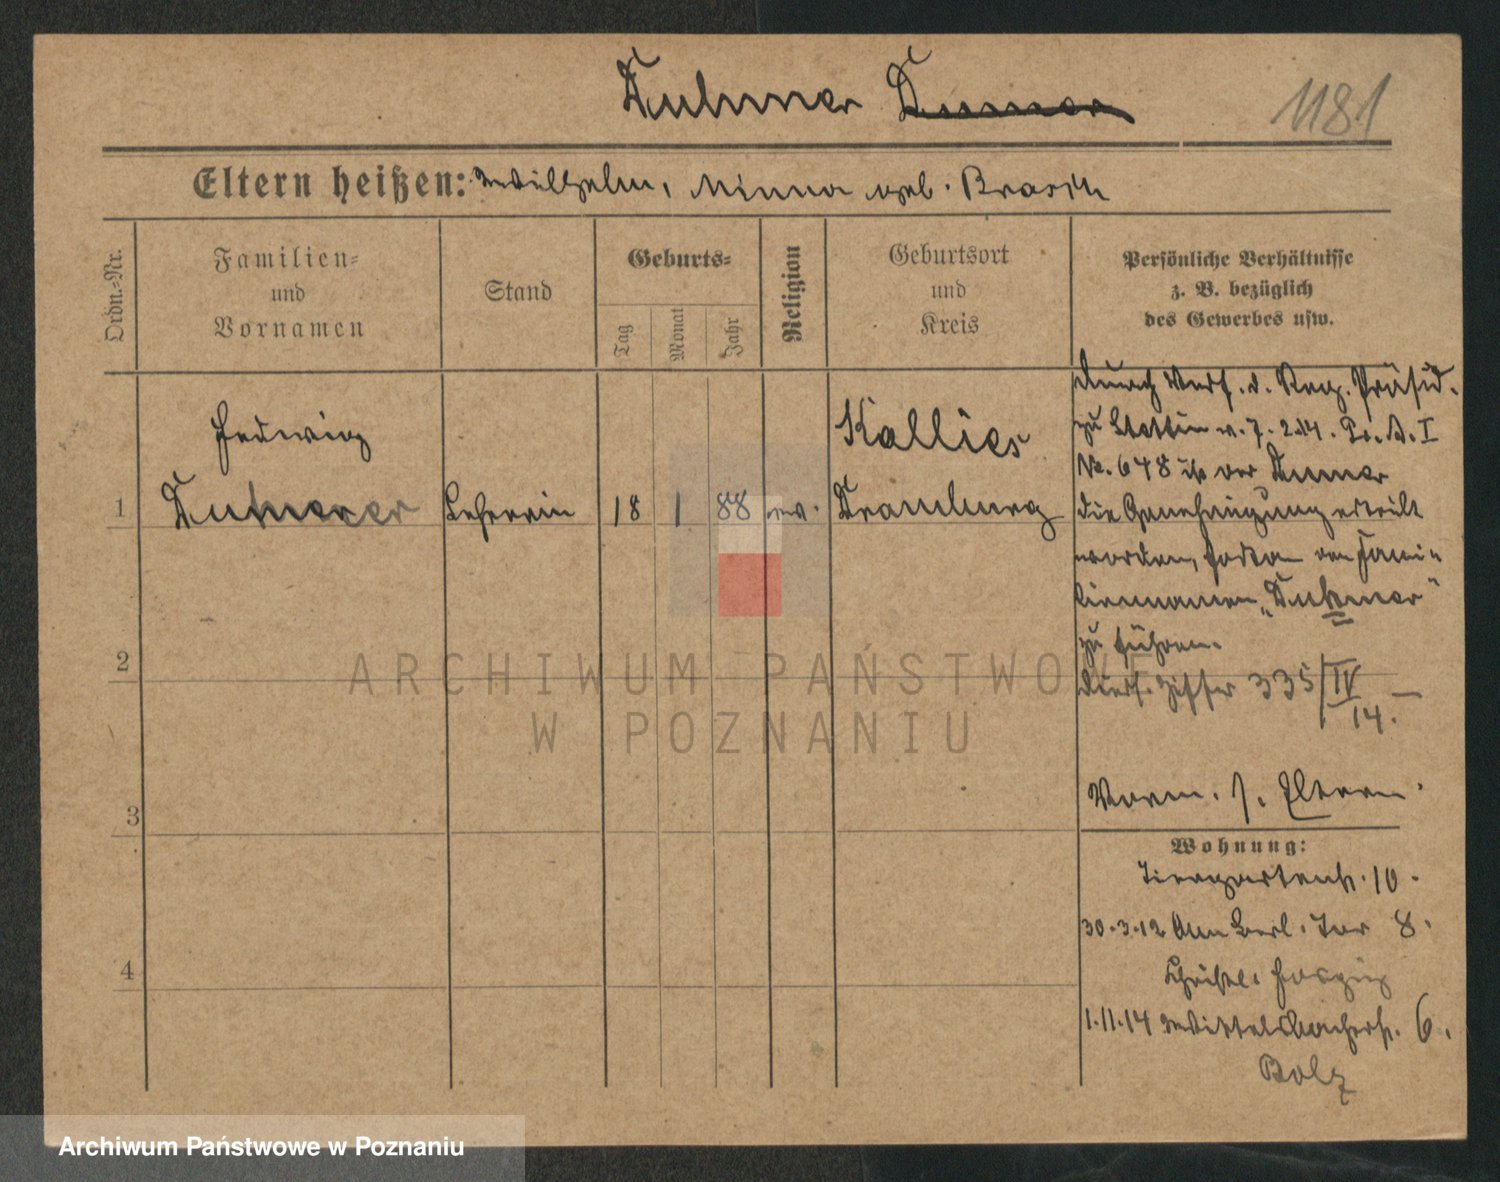 Duhmer Dumer
1181
Eltern heißen: Wilhelm, Minna geb. Brasch
Ordn.-Nr.
Familien-
und
Vornamen
Stand
Geburts-
Tag
Monat
Jahr
Religion
Geburtsort
und
Kreis
Persönliche Verhältnisse
z. B. bezüglich
des Gewerbes usw.
Hedwig
1
Lehrerin
18
1
88
ev.
Kallies
Dramburg
durch Verf. d. Reg. Präsid.
zu Stettin v. 7. 2.14. Pr. A. I
No. 648 ist der Dumer
die Genehmigung erteilt
worden, fortan den Fami-
liennamen „Duhmer"
zu führen.
Ziffer 335/IV
14.
2
3
4
Eltern.
Wohnung:
Tiergartenstr. 10.
30.3.12 Am Berl. Tor 8.
1.11.14 Wittelsbacherstr. 6.
Bolz
ARCHIWUM PAŃSTWOWE
W POZNANIU
Archiwum Państwowe w Poznaniu